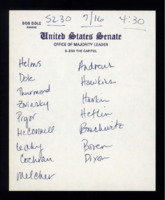 BOB DOLE
KANSAS
5230 7/16 4:30
United States Senate
OFFICE OF MAJORITY LEADER
S-230 THE CAPITOL
Helms
Dole
Thurmond
Zorinsky
Pryor
McConnell
Leahy
Cochran
Melcher
Andrews
Hawkins
Harkin
Heflin
Boschwitz
Boren
Dixon